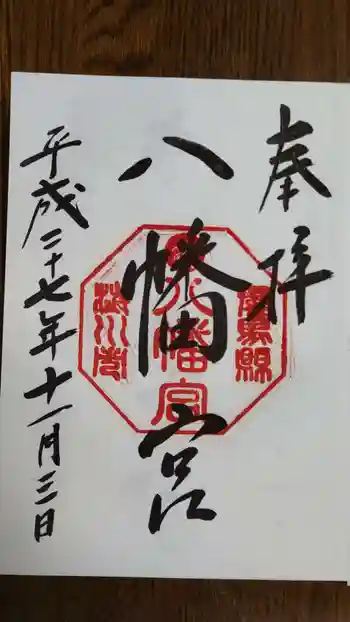 奉拝
八幡宮
平成二十七年十一月三日
八幡宮
渋川市